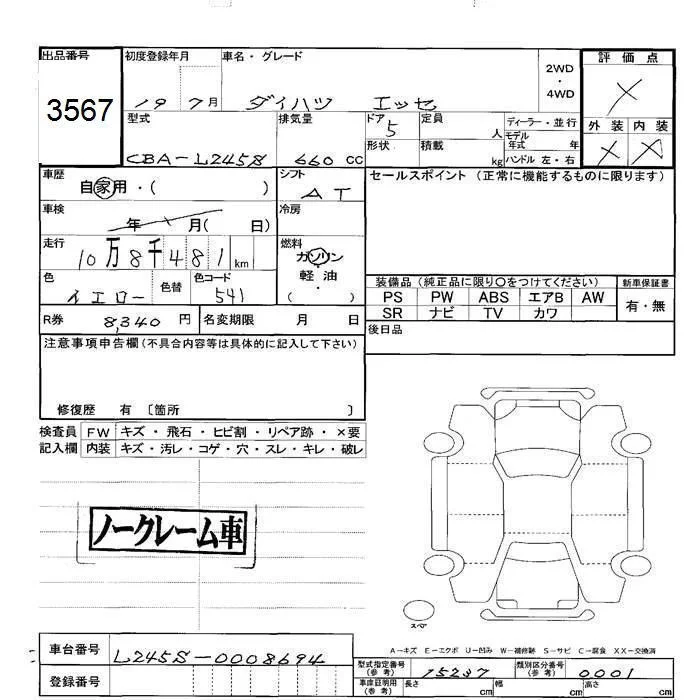 出品番号 初度登録年月 車名・グレード 2WD・4WD 評価点
3567 19 7月 ダイハツ エッセ ×
型式 排気量 ドア 5 定員 人 ディーラー・並行 外装 内装
CBA-L245S 660 CC 形状 積載 kg モデル年式 年 ハンドル 左・右 × ×
車歴 自家用・( ) シフト AT セールスポイント (正常に機能するものに限ります)
車検 年 月( 日) 冷房
走行 10万8千481km 燃料 ガソリン
軽油
( )
色 イエロー 色替 色コード 541
装備品 (純正品に限り○をつけてください) 新車保証書
PS PW ABS エアB AW 有・無
SR ナビ TV カワ
R券 8,340円 名変期限 月 日
後日品
注意事項申告欄(不具合内容等は具体的に記入して下さい)
修復歴 有〔箇所 〕
検査員 FW キズ・飛石・ヒビ割・リペア跡・×要
記入欄 内装 キズ・汚レ・コゲ・穴・スレ・キレ・破レ
ノークレーム車
スペア
A-キズ E-エクボ U-凹み W-補修跡 S-サビ C-腐食 XX-交換済
車台番号 L245S-0008694
型式指定番号(参考) 15237 類別区分番号(参考) 0001
登録番号
車庫証明用(参考) 長さ cm 幅 cm 高さ cm